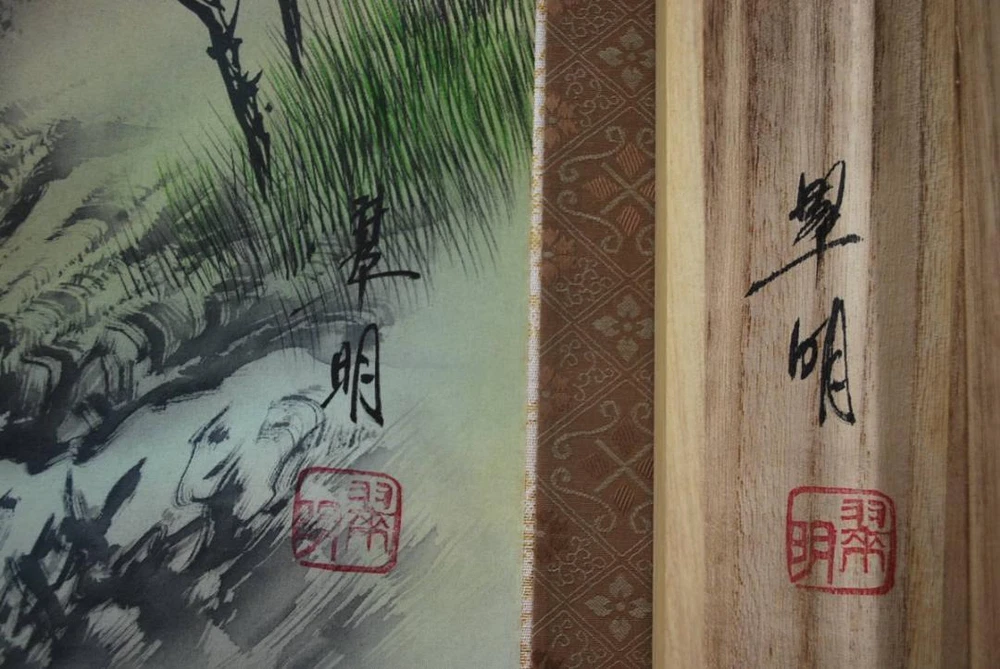 翠明
翠明
翠明
翠明